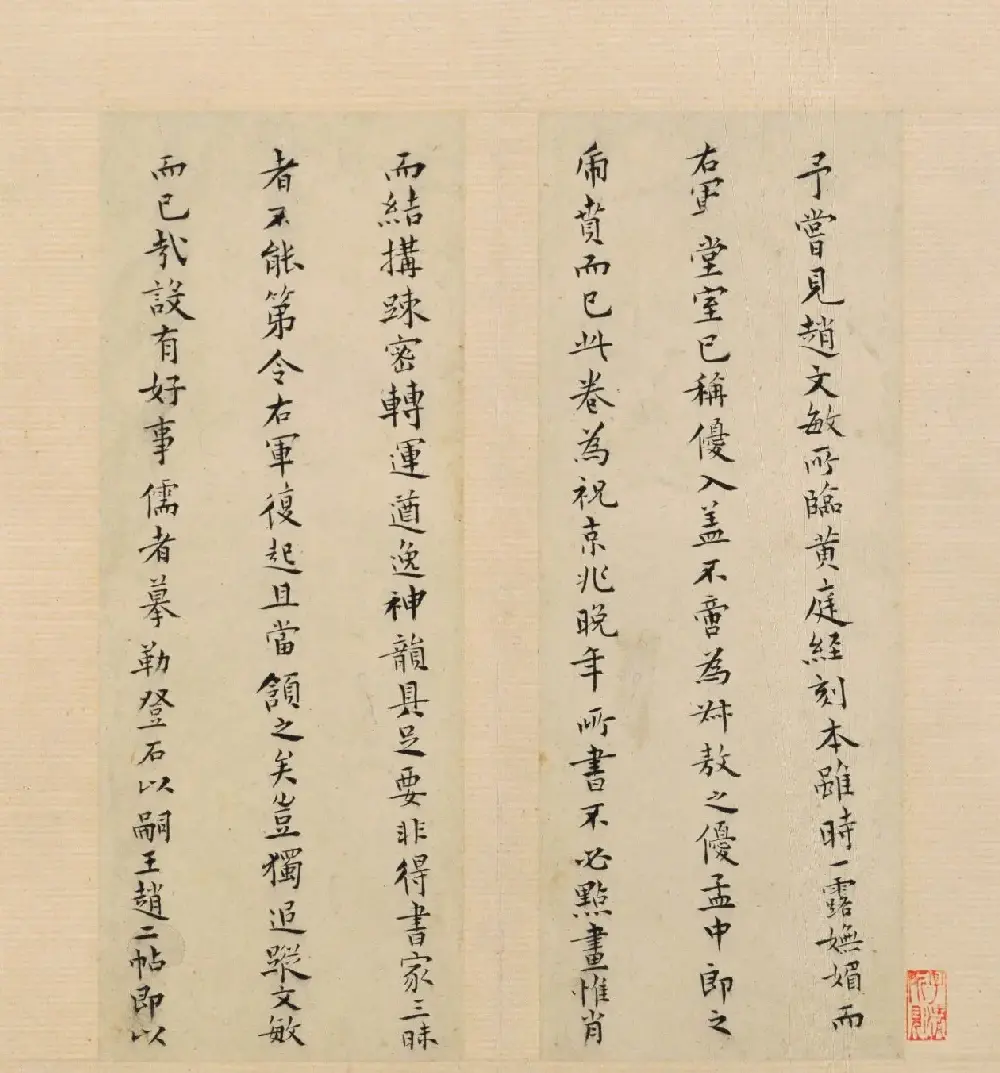 予嘗見趙文敏所臨黃庭經刻本雖時一露嫵媚而
右軍堂室已稱優入盖不啻為叔敖之優孟中郎之
席賁而已此卷為祝京兆晚年所書不必點畫惟肖
而結搆踈密轉運遒逸神韻具足要非得書家三昧
者不能第令右軍復起且當頷之矣豈獨追蹤文敏
而已哉設有好事儒者摹勒登石以嗣王趙二帖即以